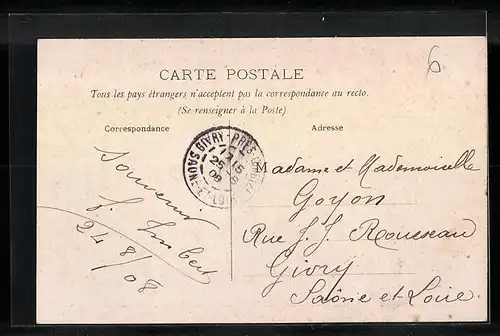 6
CARTE POSTALE
Tous les pays étrangers n'acceptent pas la correspondance au recto.
(Se renseigner à la Poste)
Correspondance
Adresse
Souvenir
f. Imbert
24/8/08
GIVRY-PRES-L'ORBIZE
25-8
08
SAONE-ET-LOIRE
Madame et Mademoiselle
Goyon
Rue J. J. Rousseau
Givry
Saône et Loire